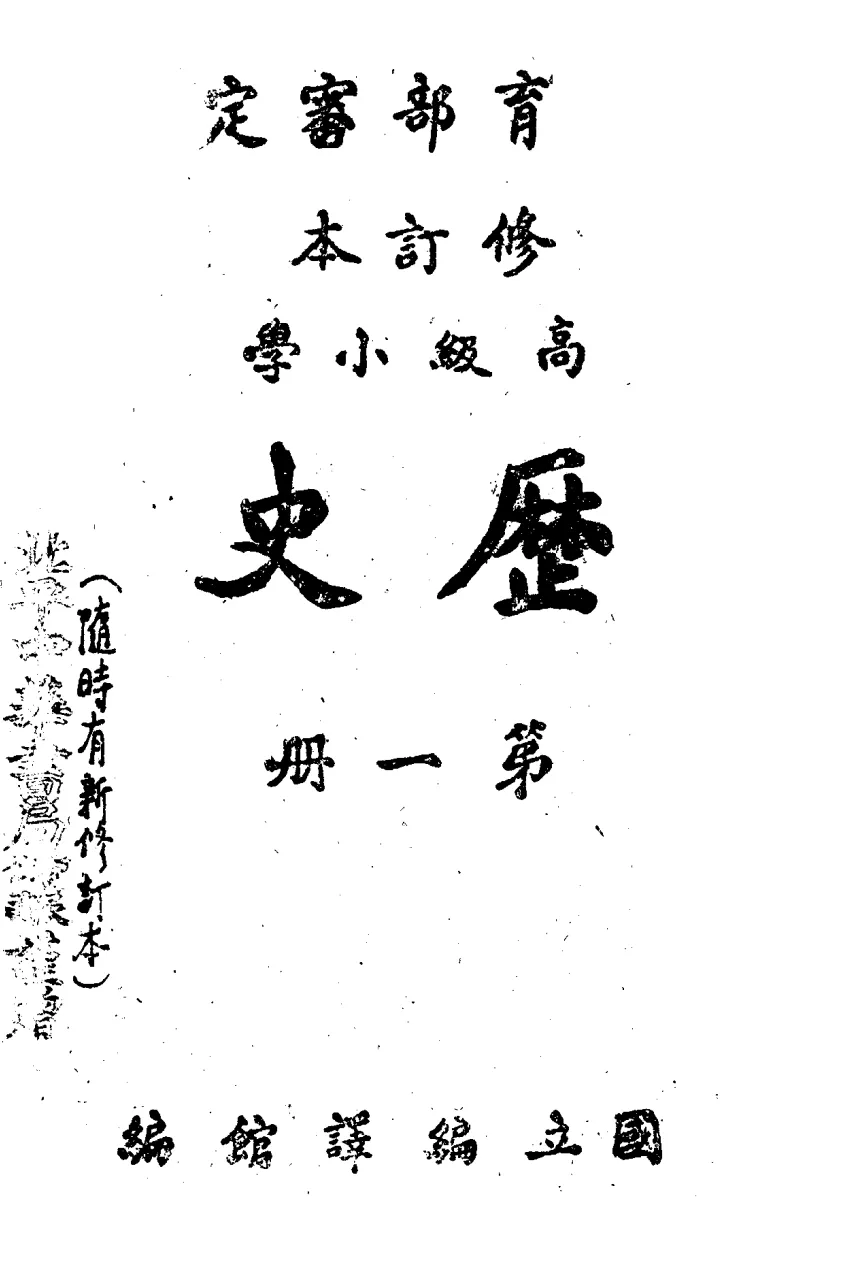 育部審定
修訂本
高級小學
歷史
第一冊
（隨時有新修訂本）
北平中華書局
國立編譯館編